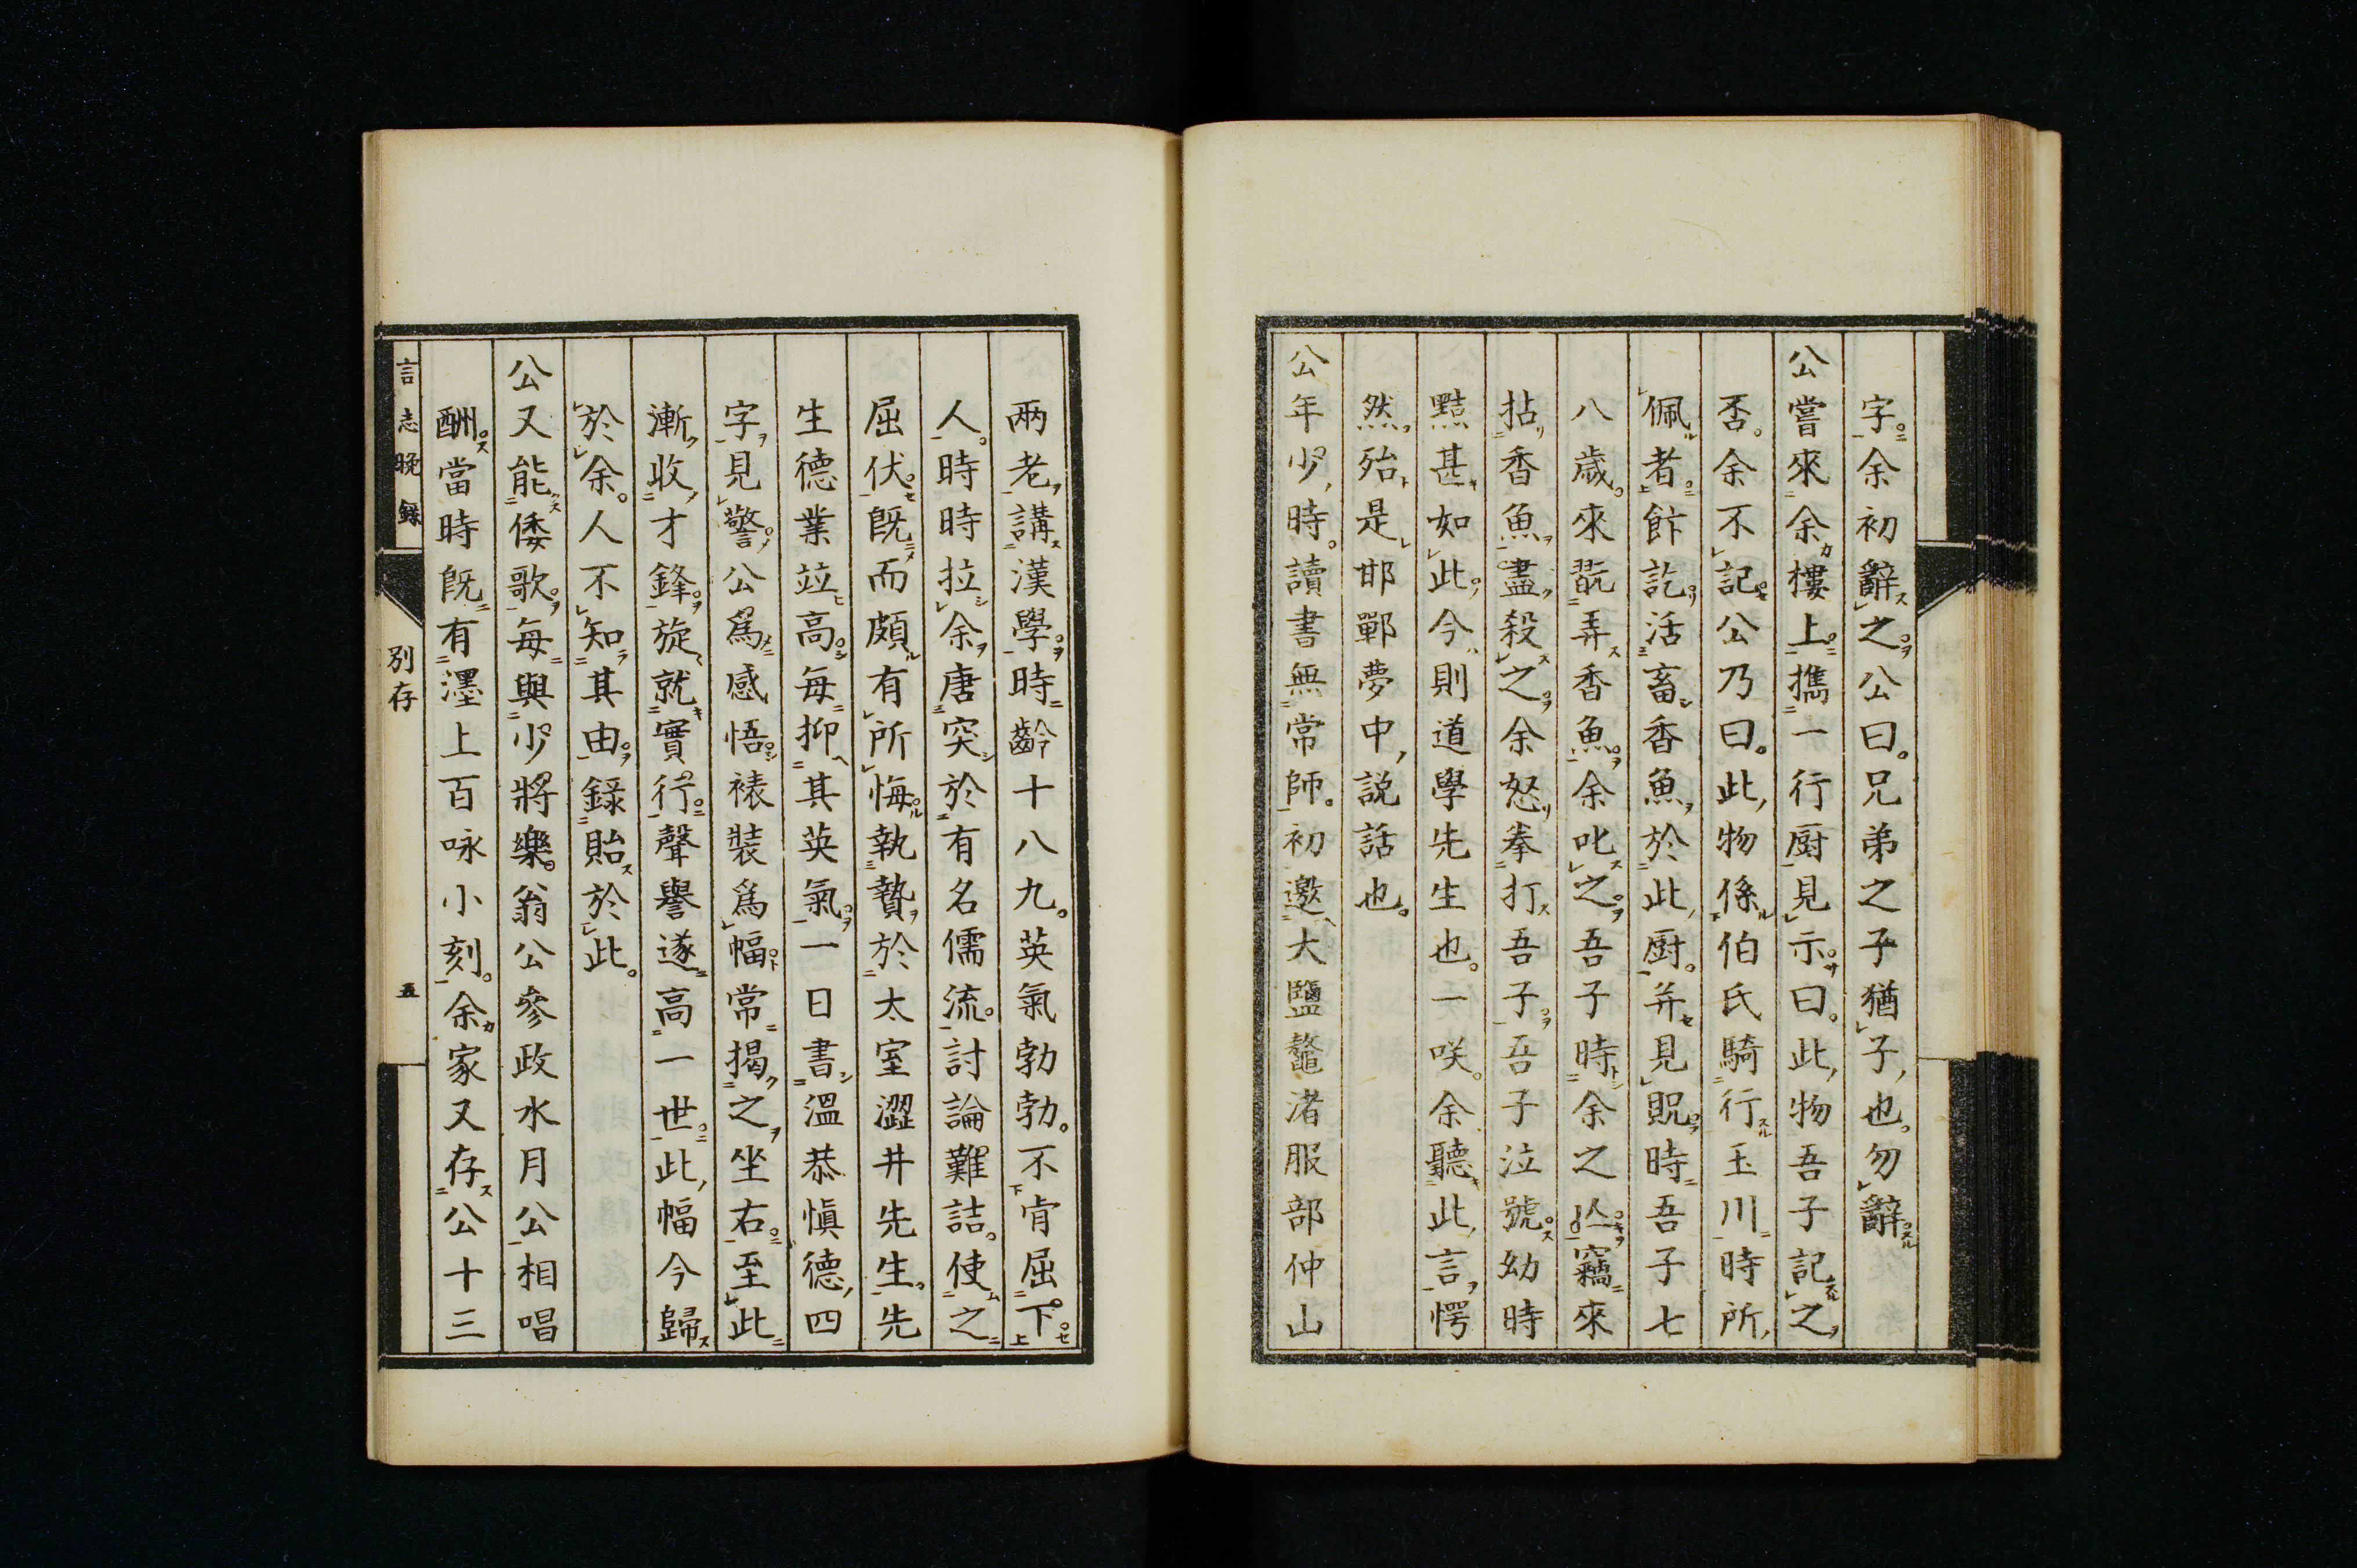 字余初辭之公曰兄弟之子猶子也勿辭
公嘗來余樓上攜一行厨見示曰此物吾子記之
否余不記公乃曰此物係伯氏騎行玉川時所
佩者飰訖活畜香魚於此厨并見貺時吾子七
八歳來翫弄香魚余叱之吾子時余之亾竊來
拈香魚盡殺之余怒拳打吾子吾子泣號幼時
黠甚如此今則道學先生也一咲余聽此言愕
然殆是邯鄲夢中説話也
公年少時讀書無常師初邀大鹽鼇渚服部仲山
兩老講漢學時齡十八九英氣勃勃不肯屈下
人時時拉余唐突於有名儒流討論難詰使之
屈伏既而頗有所悔執贄於太室澀井先生先
生德業竝高每抑其英氣一日書溫恭愼德四
字見警公爲感悟裱裝爲幅常揭之坐右至此
漸收才鋒旋就實行聲譽遂高一世此幅今歸
於余人不知其由錄貽於此
公又能倭歌每與少將樂翁公參政水月公相唱
酬當時既有墨上百咏小刻余家又存公十三
言志晩錄
別存
五